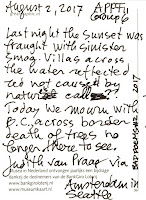 August 2, 2017 APPFII
Group 6
Last night the Sunset was
fraught with sinister
Smog. Villas across
the water reflected
red not caused by
nature
Today we mourn with
B.C. across border
death of trees no
longer there to see.
Judith van Praag via
Musea in Nederland ontvangen jaarlijks een bijdrage
dankzij de deelnemers van de BankGiro Loterij.
www.bankgiroloterij.nl
www.museumkaart.nl
Amsterdam in
Seattle
BADPOEMS#2 2017